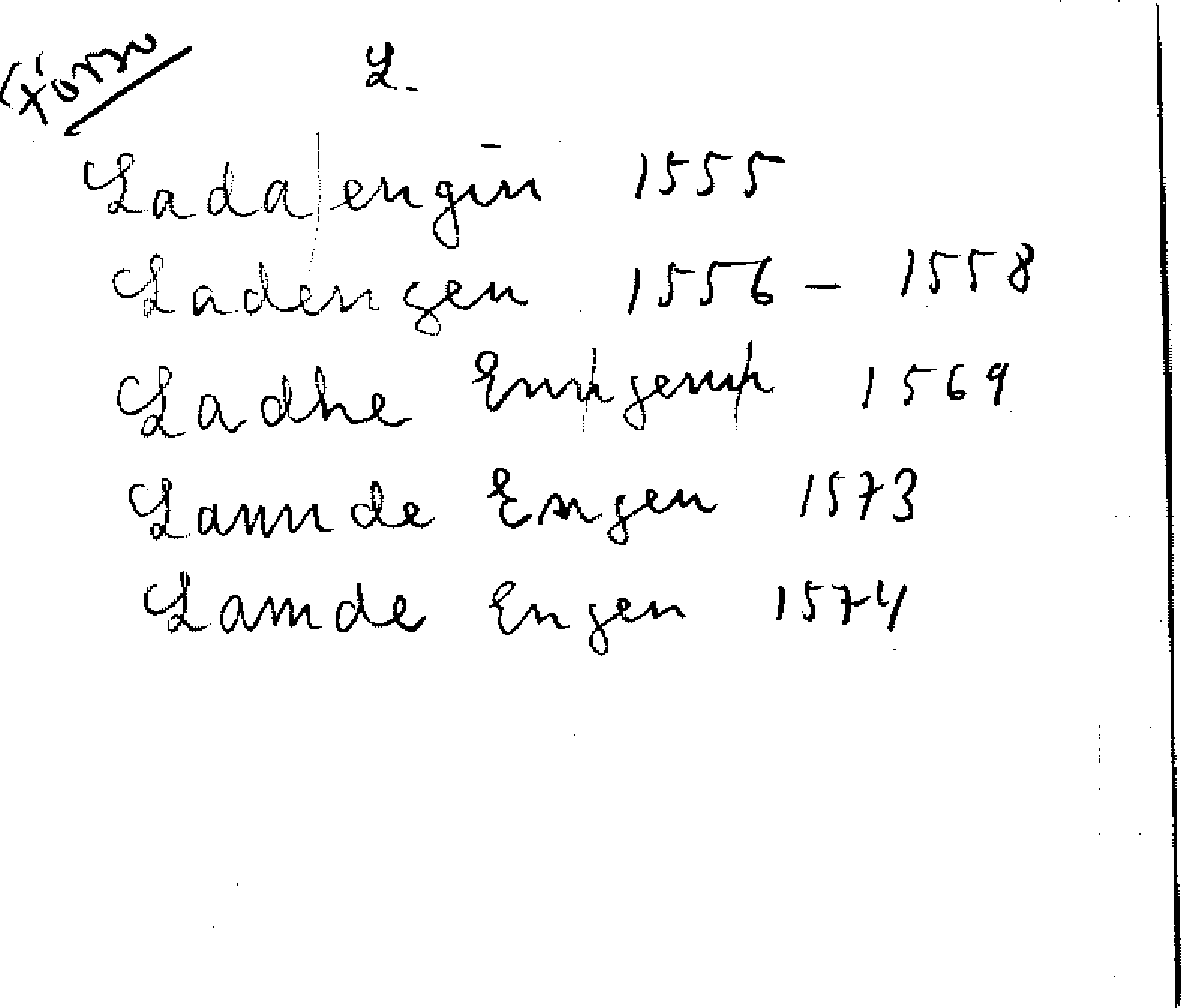 Förso L.
Lada|engin̄ 1555
Ladengen 1556 - 1558
Ladhe Enn|genn| 1569
Lannde Engen 1573
Lamde Engen 1574